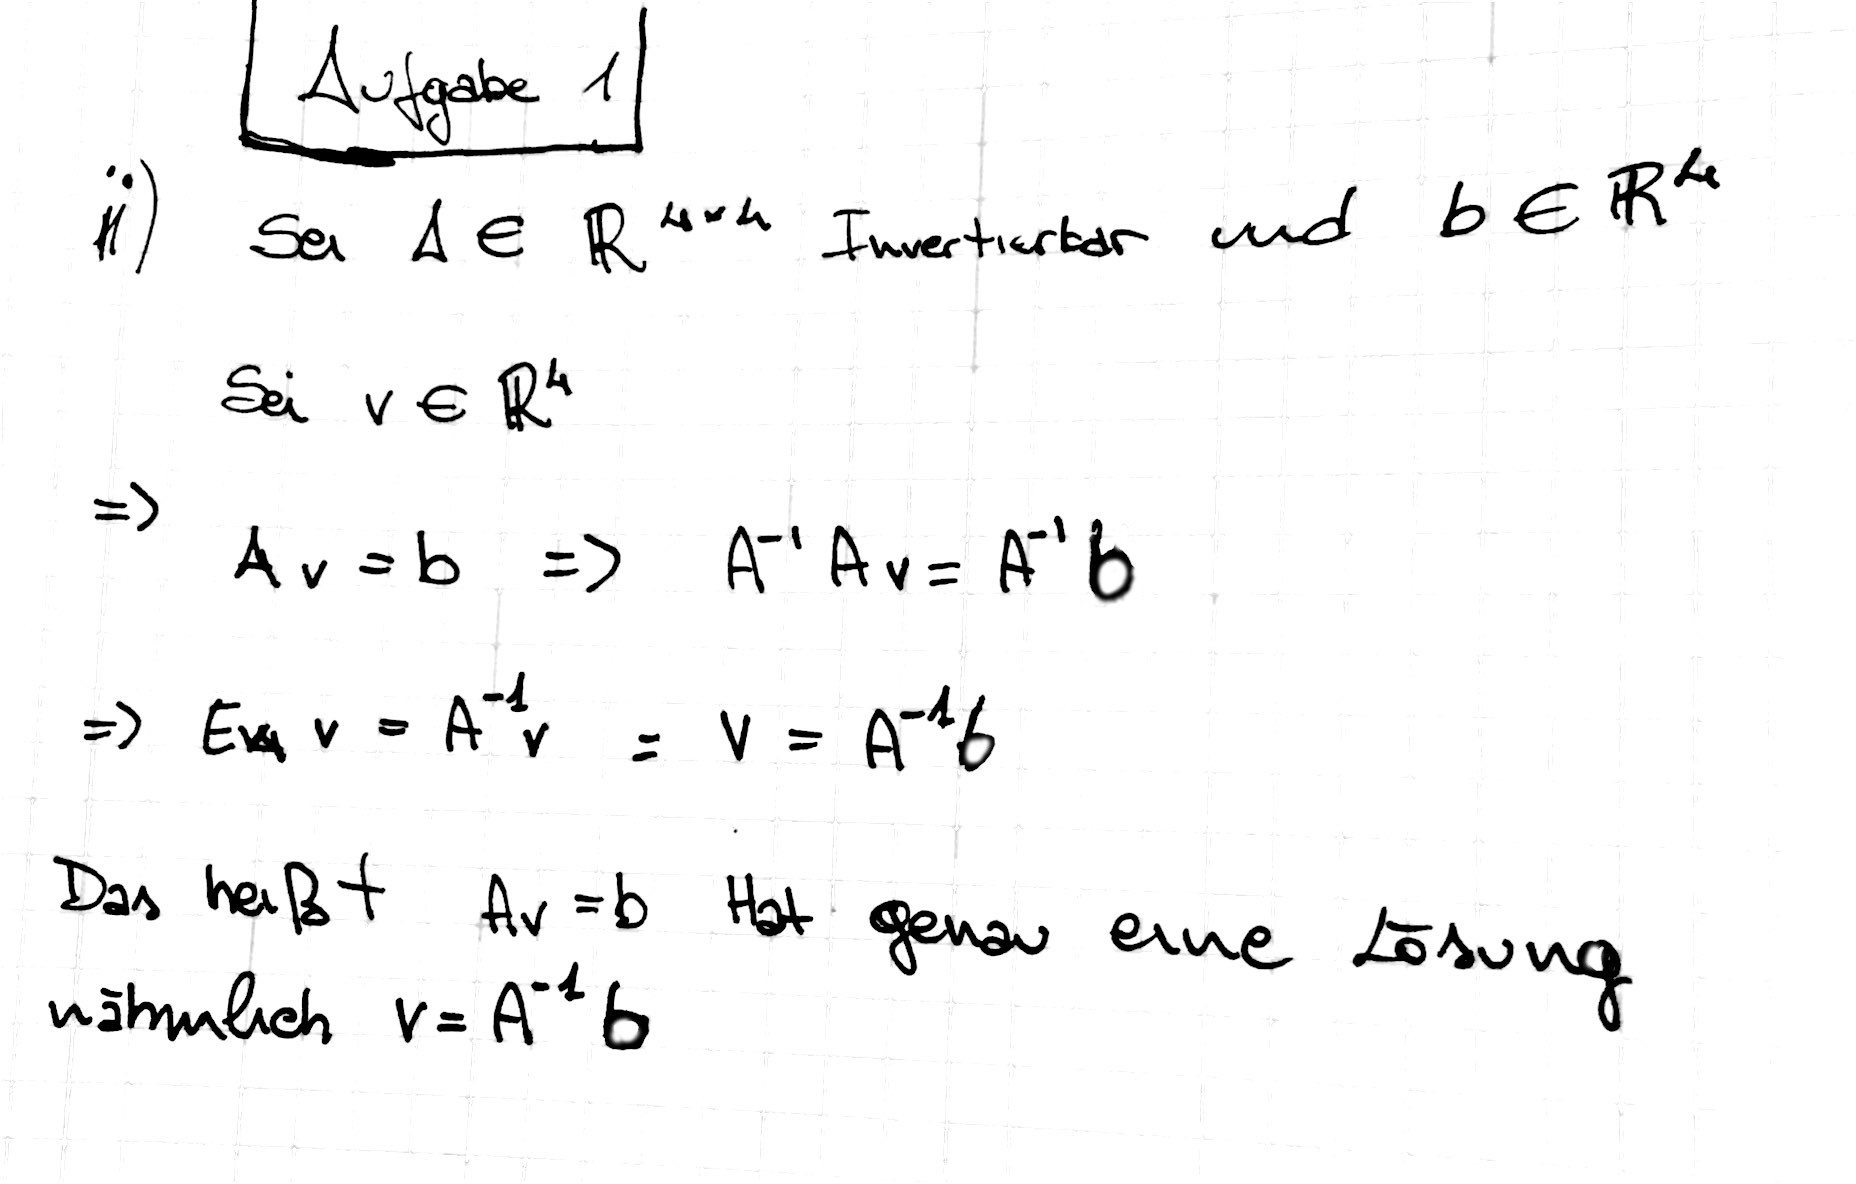 Aufgabe 1
ii) Sei A ∈ ℝ⁴ˣ⁴ Invertierbar und b ∈ ℝ⁴
Sei v ∈ ℝ⁴
=>
Av = b => A⁻¹Av = A⁻¹b
=> E v = A⁻¹v = v = A⁻¹b
Das heißt Av = b Hat genau eine Lösung
nähmlich v = A⁻¹b